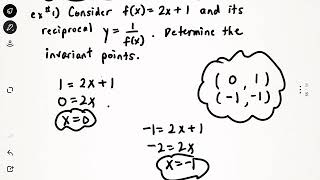 ex#1) Consider f(x) = 2x + 1 and its
reciprocal y = 1/f(x). Determine the
invariant points.
1 = 2x + 1
0 = 2x
x = 0
-1 = 2x + 1
-2 = 2x
x = -1
(0, 1)
(-1, -1)